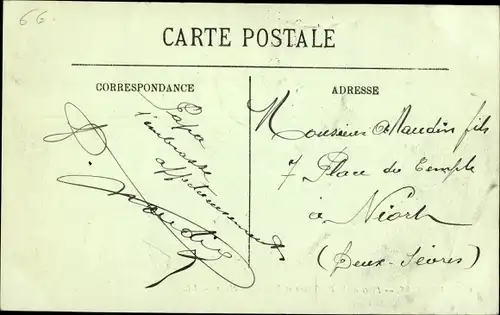 66.
CARTE POSTALE
CORRESPONDANCE
Papa
t'embrasse
affectueusement
Naudin
ADRESSE
Monsieur Naudin fils
7 Place du Temple
à Niort
(Deux-Sèvres)